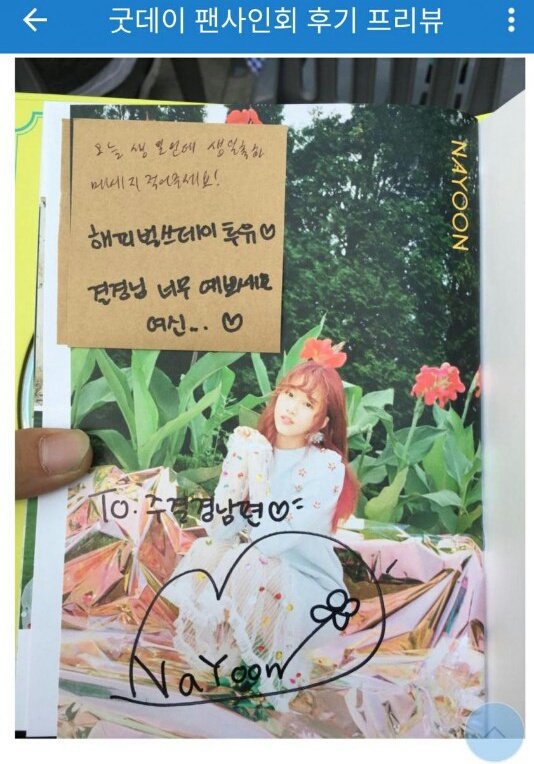 굿데이 팬사인회 후기 프리뷰
NAYOON
오늘 생일인데 생일축하
메세지 적어주세요!
해피벌쓰데이 투유♡
결경님 너무 예쁘세요
여신... ♡
To: 주결경남편♡
NaYoon